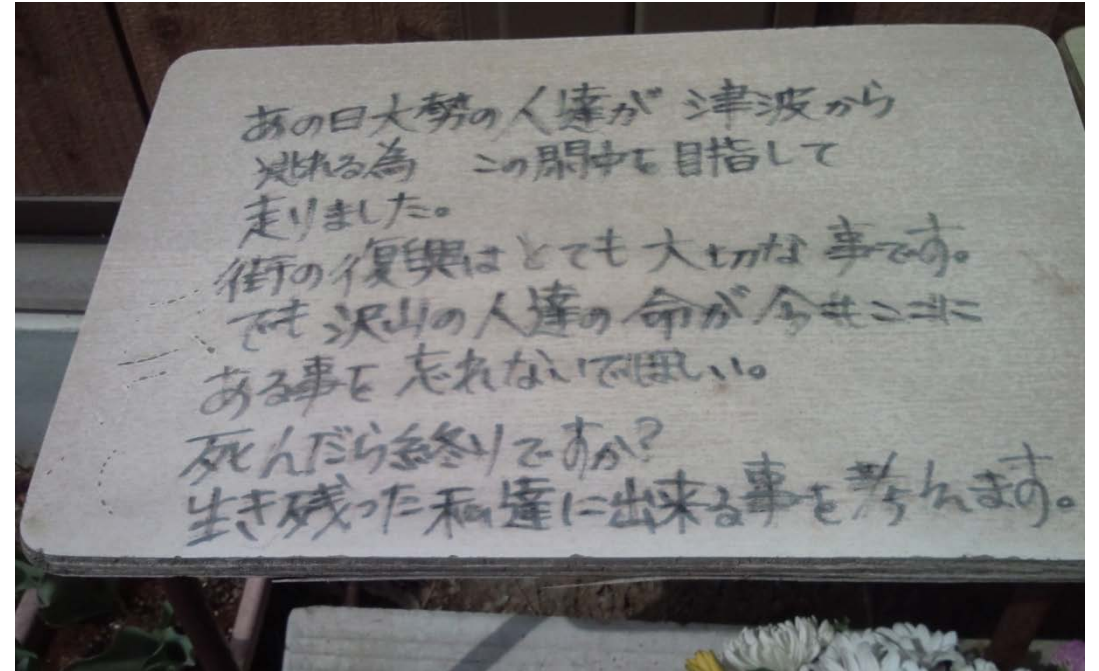 あの日大勢の人達が 津波から
逃れる為 この閖中を目指して
走りました。
街の復興はとても大切な事です。
でも沢山の人達の命が今もここに
ある事を忘れないでほしい。
死んだら終りですか?
生き残った私達に出来る事を考えます。